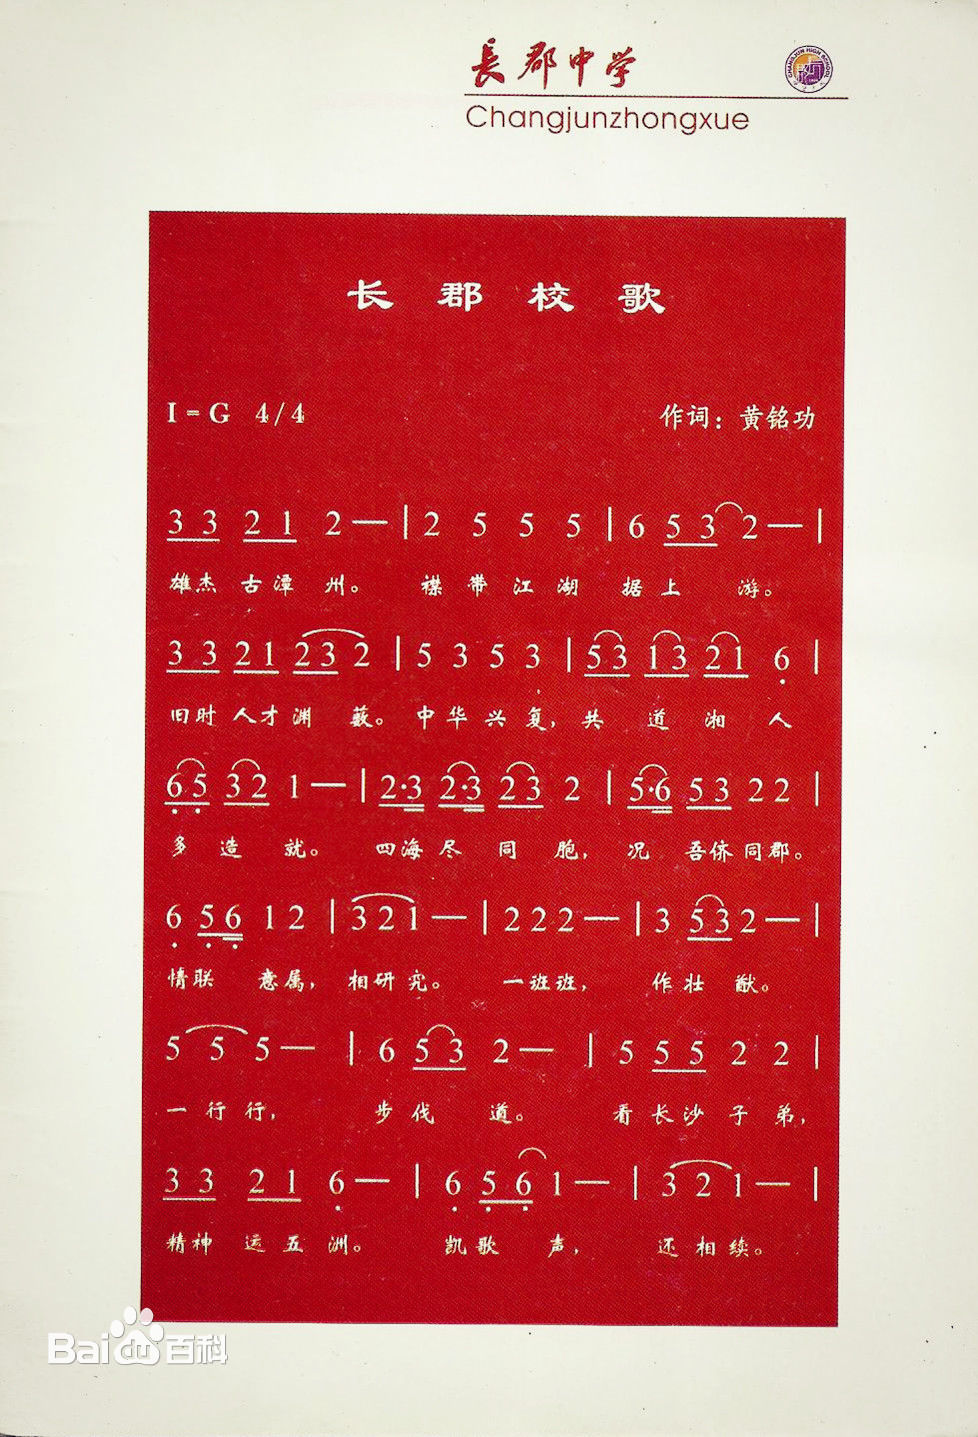 長郡中学
Changjunzhongxue
长郡校歌
I=G 4/4
作词：黄铭功
3 3 2 1 2 — | 2 5 5 5 | 6 5 3 2 — |
雄杰古潭州。 襟带江湖据上游。
3 3 2 1 2 3 2 | 5 3 5 3 | 5 3 1 3 2 1 6 |
旧时人才渊薮。中华兴复，共道湘人
6 5 3 2 1 — | 2·3 2·3 2 3 2 | 5·6 5 3 2 2 |
多造就。 四海尽同胞，况吾侪同郡。
6 5 6 1 2 | 3 2 1 — | 2 2 2 — | 3 5 3 2 — |
情联意属，相研究。 一班班， 作壮猷。
5 5 5 — | 6 5 3 2 — | 5 5 5 2 2 |
一行行， 步伐遒。 看长沙子弟，
3 3 2 1 6 — | 6 5 6 1 — | 3 2 1 — |
精神运五洲。 凯歌声， 还相续。
Bai du 百科